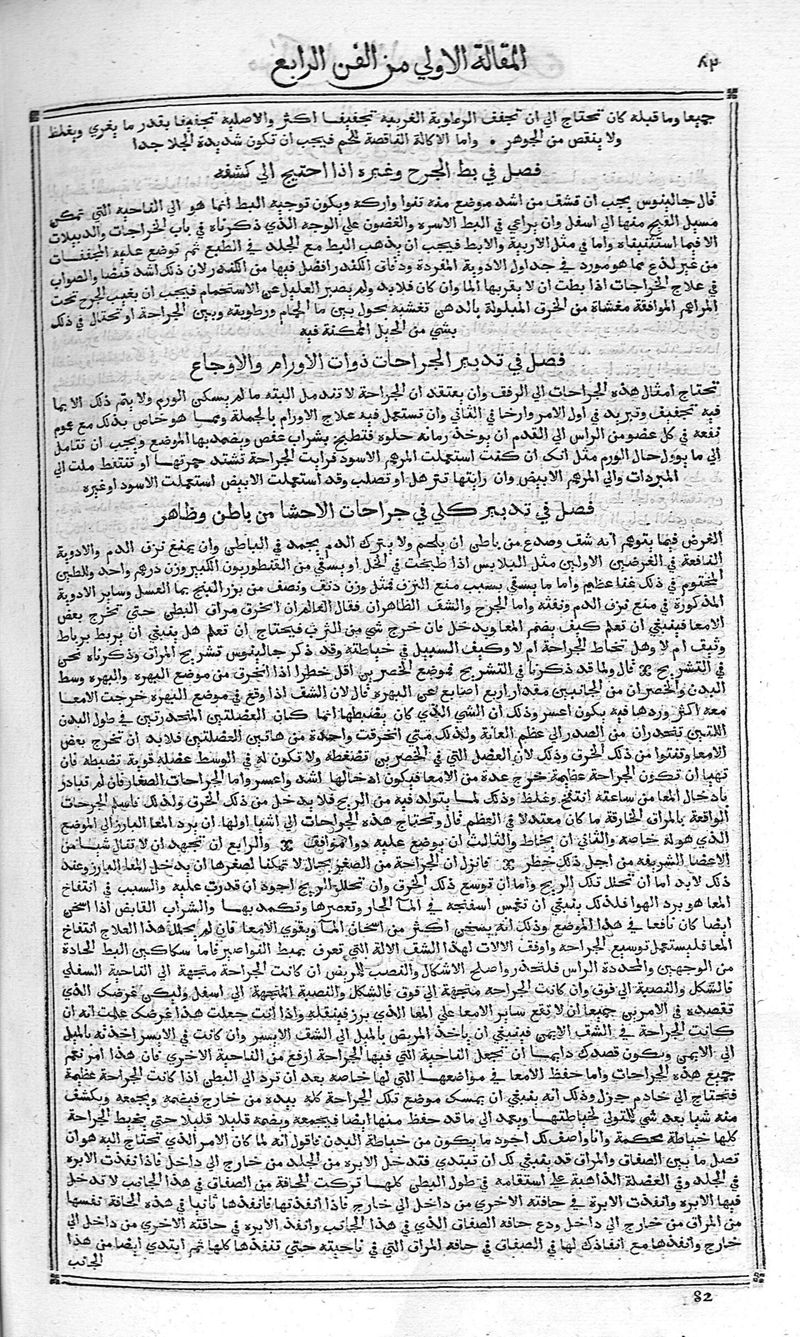 ٨٣
المقالة الاولي من الفن الرابع
جميعا وما قبله كان تحتاج الي ان تجفف الرطوبة الغريبة تجفيفا اكثر والاصلية تجفيفا بقدر ما يغري ويغلظ
ولا ينقص من الجوهر ٠ واما الاكالة الناقصة للحم فيجب ان تكون شديدة الجلا جدا
فصل في بط الجرح وغيره اذا احتيج الي كشفه
قال جالينوس يجب ان تشف من اشد موضع منه نتوا واركه ويكون توجيه البط انما هو الي الناحيه التي تمكن
مسيل القيح منها الي اسفل وان يراعي في البط الاسره والغضون علي الوجه الذي ذكرناه في باب الخراجات والدبيلات
الا فيما استثنيناه واما في مثل الاربية والابط فيجب ان يذهب البط مع الجلد في الطبع ثم توضع عليه المجففات
من غير لذع مما هو مورد في جداول الادوية المفردة ودقاق الكندر افضل فيها من الكندر لان ذلك اشد قبضا والصواب
في علاج الخراجات اذا بطت ان لا يقربها الما وان كان فلابد ولم يصبر العليل عن الاستحمام فيجب ان يغيب الجرح تحت
المراهم الموافقة مغشاة من الخرق المبلولة بالدهن تغشيه تحول بين ما الحمام ورطوبته وبين الجراحة او تحتال في ذلك
بشي من الحيل الممكنة فيه
فصل في تدبير الجراحات ذوات الاورام والاوجاع
تحتاج امثال هذه الجراحات الي الرفق وان يعتقد ان الجراحة لا تندمل البته ما لم يسكن الورم ولا يتم ذلك الا بما
فيه تجفيف وتبريد في اول الامر وارخا في الثاني وان تستعمل فيه علاج الاورام بالجملة ومما هو خاص بذلك مع عموم
نفعه في كل عضو من الراس الي القدم ان يوخذ رمانه حلوة فتطبخ بشراب عفص ويضمد بها الموضع ويجب ان تتامل
الي ما يوول حال الورم مثل انك ان كنت استعملت المرهم الاسود فرايت الجراحة تشتد حمرتها او تتنفط ملت الي
المبردات والي المرهم الابيض وان رايتها تترهل او تصلب وقد استعملت الابيض استعملت الاسود او غيره
فصل في تدبير كلي في جراحات الاحشا من باطن وظاهر
الغرض فيما يتوهم انه شف وصدع من باطن ان يلحم ولا يترك الدم يجمد في الباطن وان يمنع نزف الدم والادوية
النافعة في الغرضين الاولين مثل البلابس اذا طبخت في الخل او يسقي من القنطوريون الكبير وزن درهم واحد وللطين
المختوم في ذلك غنا عظيم واما ما يسقي بسبب منع النزف فمثل وزن دنف ونصف من بزر البنج بما العسل وساير الادوية
المذكورة في منع نزف الدم ونفثه واما الجرح والشف الظاهران فقال العالم ان انخرق مراق البطن حتي تخرج بعض
الامعا فينبغي ان تعلم كيف يضم المعا ويدخل فان خرج شي من الثرب فيحتاج ان تعلم هل ينبغي ان يربط برباط
وثيق ام لا وهل تخاط الجراحة ام لا وكيف السبيل في خياطته وقد ذكر جالينوس تشريح المراق وذكرناه نحن
في التشريح ※ قال ولما قد ذكرنا في التشريح فموضع الخصرين اقل خطرا اذا انخرق من موضع البهره والبهره وسط
البدن والخصران من الجانبين مقدار اربع اصابع عن البهره قال لان الشف اذا وقع في موضع البهرة خرجت الامعا
معه اكثر وردها فيه يكون اعسر وذلك ان الشي الذي كان يضبطها انما كان العضلتين المنحدرتين في طول البدن
اللتين تنحدران من الصدر الي عظم العانة ولذلك متي انخرقت واحدة من هاتين العضلتين فلابد ان تخرج بعض
الامعا وتنتوا من ذلك الخرق وذلك لان العضل التي في الخصرين تضغطه ولا تكون له في الوسط عضله قوية تضبطه فان
تهيا ان تكون الجراحة عظيمة خرج عدة من الامعا فيكون ادخالها اشد واعسر واما الجراحات الصغار فان لم تبادر
بادخال المعا من ساعته انتفخ وغلظ وذلك لما يتولد فيه من الريح فلا يدخل من ذلك الخرق ولذلك فاسلم الجراحات
الواقعة بالمراق الخارقة ما كان معتدلا في العظم قال وتحتاج هذه الجراحات الي اشيا اولها ان يرد المعا البارز الي الموضع
الذي هو له خاصه والثاني ان يخاط والثالث ان يوضع عليه دوا موافق ※ والرابع ان تجهد ان لا تنال شيا من
الاعضا الشريفه من اجل ذلك خطر ※ فانزل ان الجراحة من الصغر بحال لا تمكنا لصغرها ان يدخل المعا البارز وعند
ذلك لابد اما ان تحلل تلك الريح واما ان توسع ذلك الخرق وان تحلل الريح اجود ان قدرت عليه والسبب في انتفاخ
المعا هو برد الهوا فلذلك ينبغي ان تغمس اسفنجه في الما الحار وتعصرها وتكمد بها والشراب القابض اذا اسخن
ايضا كان نافعا في هذا الموضع وذلك انه يسخن اكثر من اسخان الما ويقوي الامعا فان لم يحلل هذا العلاج انتفاخ
المعا فليستعمل توسيع الجراحة واوفق الالات لهذا الشف الالة التي تعرف بمبط النواصير فاما سكاكين البط الحادة
من الوجهين والمحددة الراس فلتحذر واصلح الاشكال والنصب للمريض ان كانت الجراحة متجهة الي الناحية السفلي
فالشكل والنصبة الي فوق وان كانت الجراحة متجهة الي فوق فالشكل والنصبة المتجهة الي اسفل وليكن غرضك الذي
تقصده في الامرين جميعا ان لا تقع ساير الامعا علي المعا الذي برز فينقله واذا انت جعلت هذا غرضك علمت انه ان
كانت الجراحة في الشف الايمن فينبغي ان ياخذ المريض بالميل الي الشف الايسر وان كانت في الايسر اخذته بالميل
الي الايمن ويكون قصدك دايما ان تجعل الناحية التي فيها الجراحة ارفع من الناحية الاخري فان هذا امر نعم
جميع هذه الجراحات واما حفظ الامعا في مواضعها التي لها خاصه بعد ان ترد الي البطن اذا كانت الجراحة عظيمة
فتحتاج الي خادم جزل وذلك انه ينبغي ان يمسك موضع تلك الجراحة كله بيده من خارج فيضمه ويجمعه ويكشف
منه شيا بعد شي للمتولي لخياطتها ويعمد الي ما قد حفظ منها ايضا فيجمعه ويضمه قليلا قليلا حتي يخيط الجراحة
كلها خياطة محكمة وانا واصف لك اجود ما يكون من خياطة البدن فاقول انه لما كان الامر الذي تحتاج اليه هو ان
تصل ما بين الصفاق والمراق قد ينبغي لك ان تبتدي فتدخل الابره من الجلد من خارج الي داخل فاذا نفذت الابره
في الجلد وفي العضلة الذاهبة علي استقامه في طول البطن كلها تركت الحافة من الصفاق في هذا الجانب لا تدخل
فيها الابره وانفذت الابرة في حافته الاخري من داخل الي خارج فاذا انفذتها فانفذها ثانيا في هذه الحافة نفسها
من المراق من خارج الي داخل ودع حافه الصفاق الذي في هذا الجانب وانفذ الابره في حافته الاخري من داخل الي
خارج وانفذها مع انفاذك لها في الصفاق في حافه المراق التي في ناحيته حتي تنفذها كلها ثم ابتدي ايضا من هذا
الجانب
82